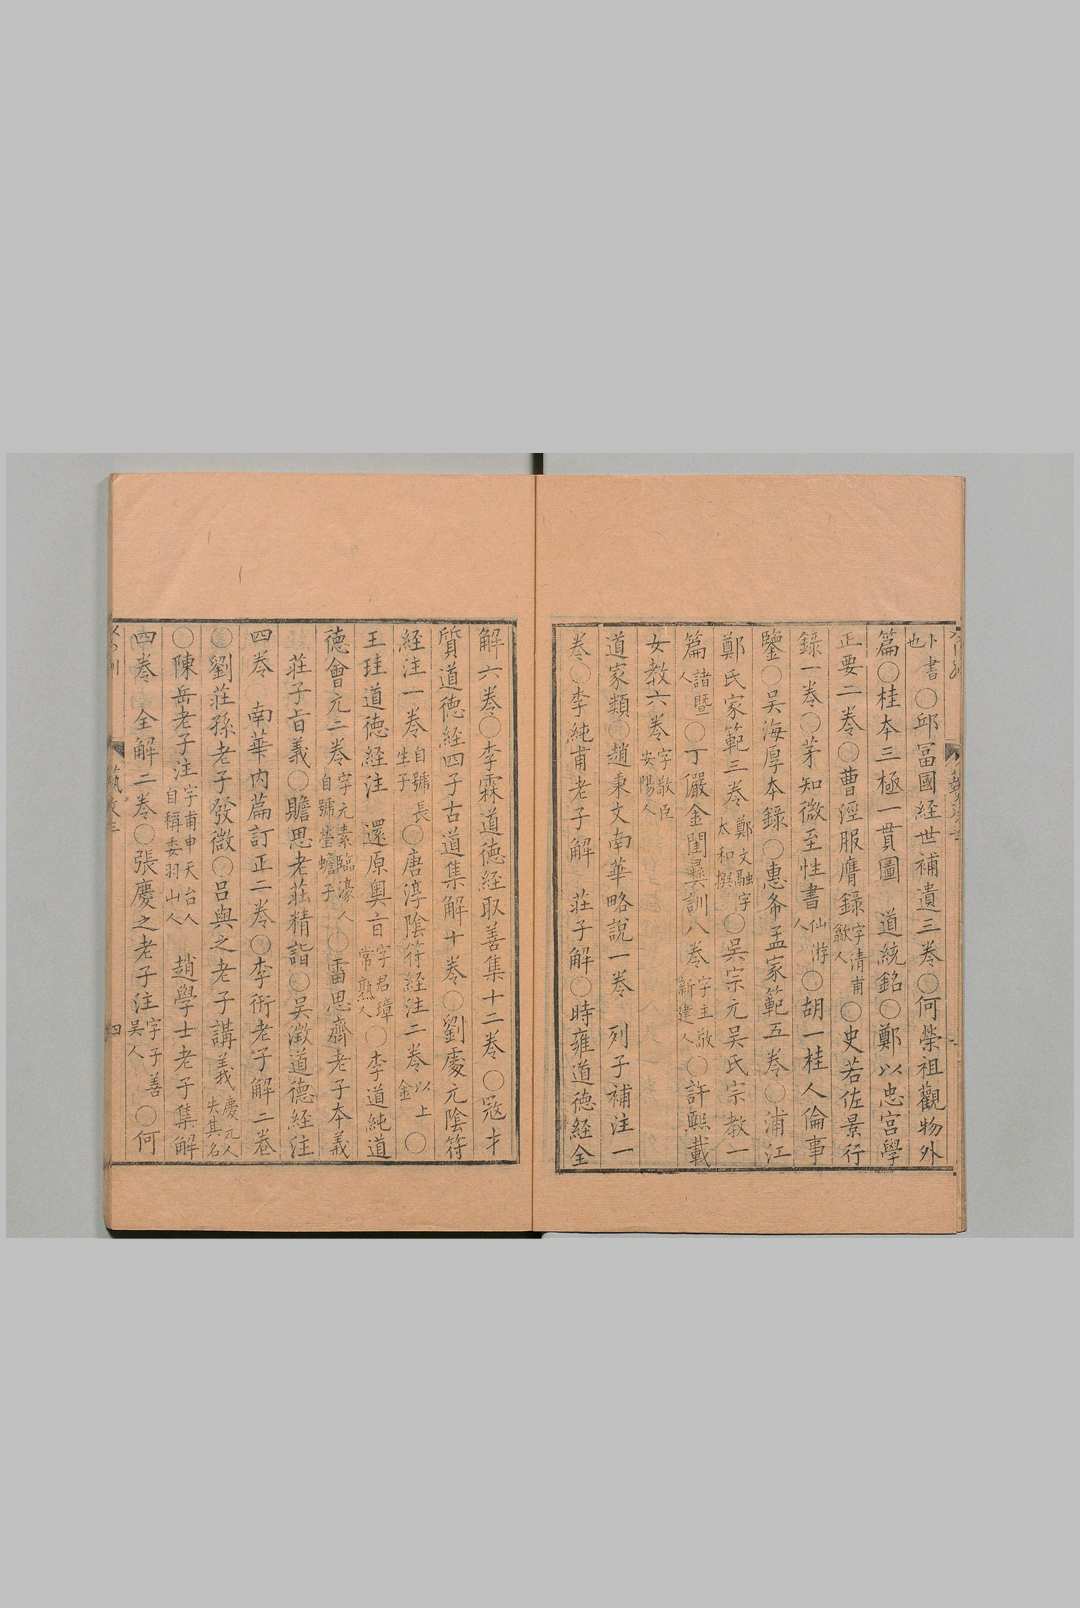 卜書也○邱富國經世補遺三卷○何榮祖觀物外
篇○桂本三極一貫圖　道統銘○鄭以忠宮學
正要二卷○曹涇服膺錄字清甫歙人○史若佐景行
錄一卷○茅知微至性書仙游人○胡一桂人倫事
鑒○吳海厚本錄○惠希孟家範五卷○浦江
鄭氏家範三卷鄭文融字太和撰○吳宗元吳氏宗教一
篇諸暨人○丁儼金閨彝訓八卷字主敬新建人○許熙載
女教六卷字敬臣安陽人
道家類○趙秉文南華略說一卷　列子補注一
卷○李純甫老子解　莊子解○時雍道德經全
解六卷○李霖道德經取善集十二卷○寇才
質道德經四子古道集解十卷○劉處元陰符
經注一卷自號長生子○唐淳陰符經注二卷以上金○
王珪道德經注　還原奧旨字君璋常熟人○李道純道
德會元二卷字元素臨濠人自號瑩蟾子○雷思齊老子本義
莊子旨義○贍思老莊精詣○吳澂道德經注
四卷　南華內篇訂正二卷○李衎老子解二卷
○劉莊孫老子發微○呂與之老子講義慶元人失其名
○陳岳老子注字甫申天台人自稱委羽山人　趙學士老子集解
四卷　全解二卷○張慶之老子注字子善吳人○何
四